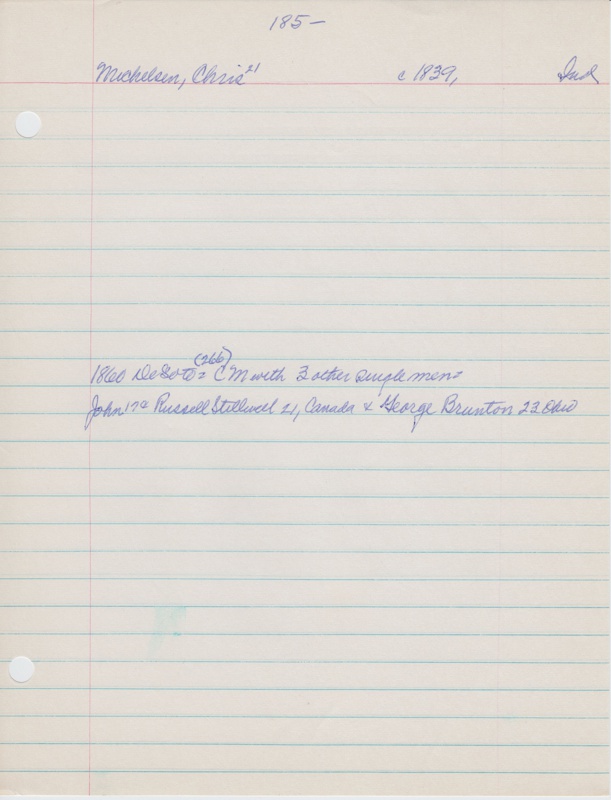 185-
Michelsen, Chris 21 c 1839, Ind
(266)
1860 DeSoto = C M with 3 other single men =
John 17 Russell Stillwell 21, Canada & George Brunton 23 Ohio